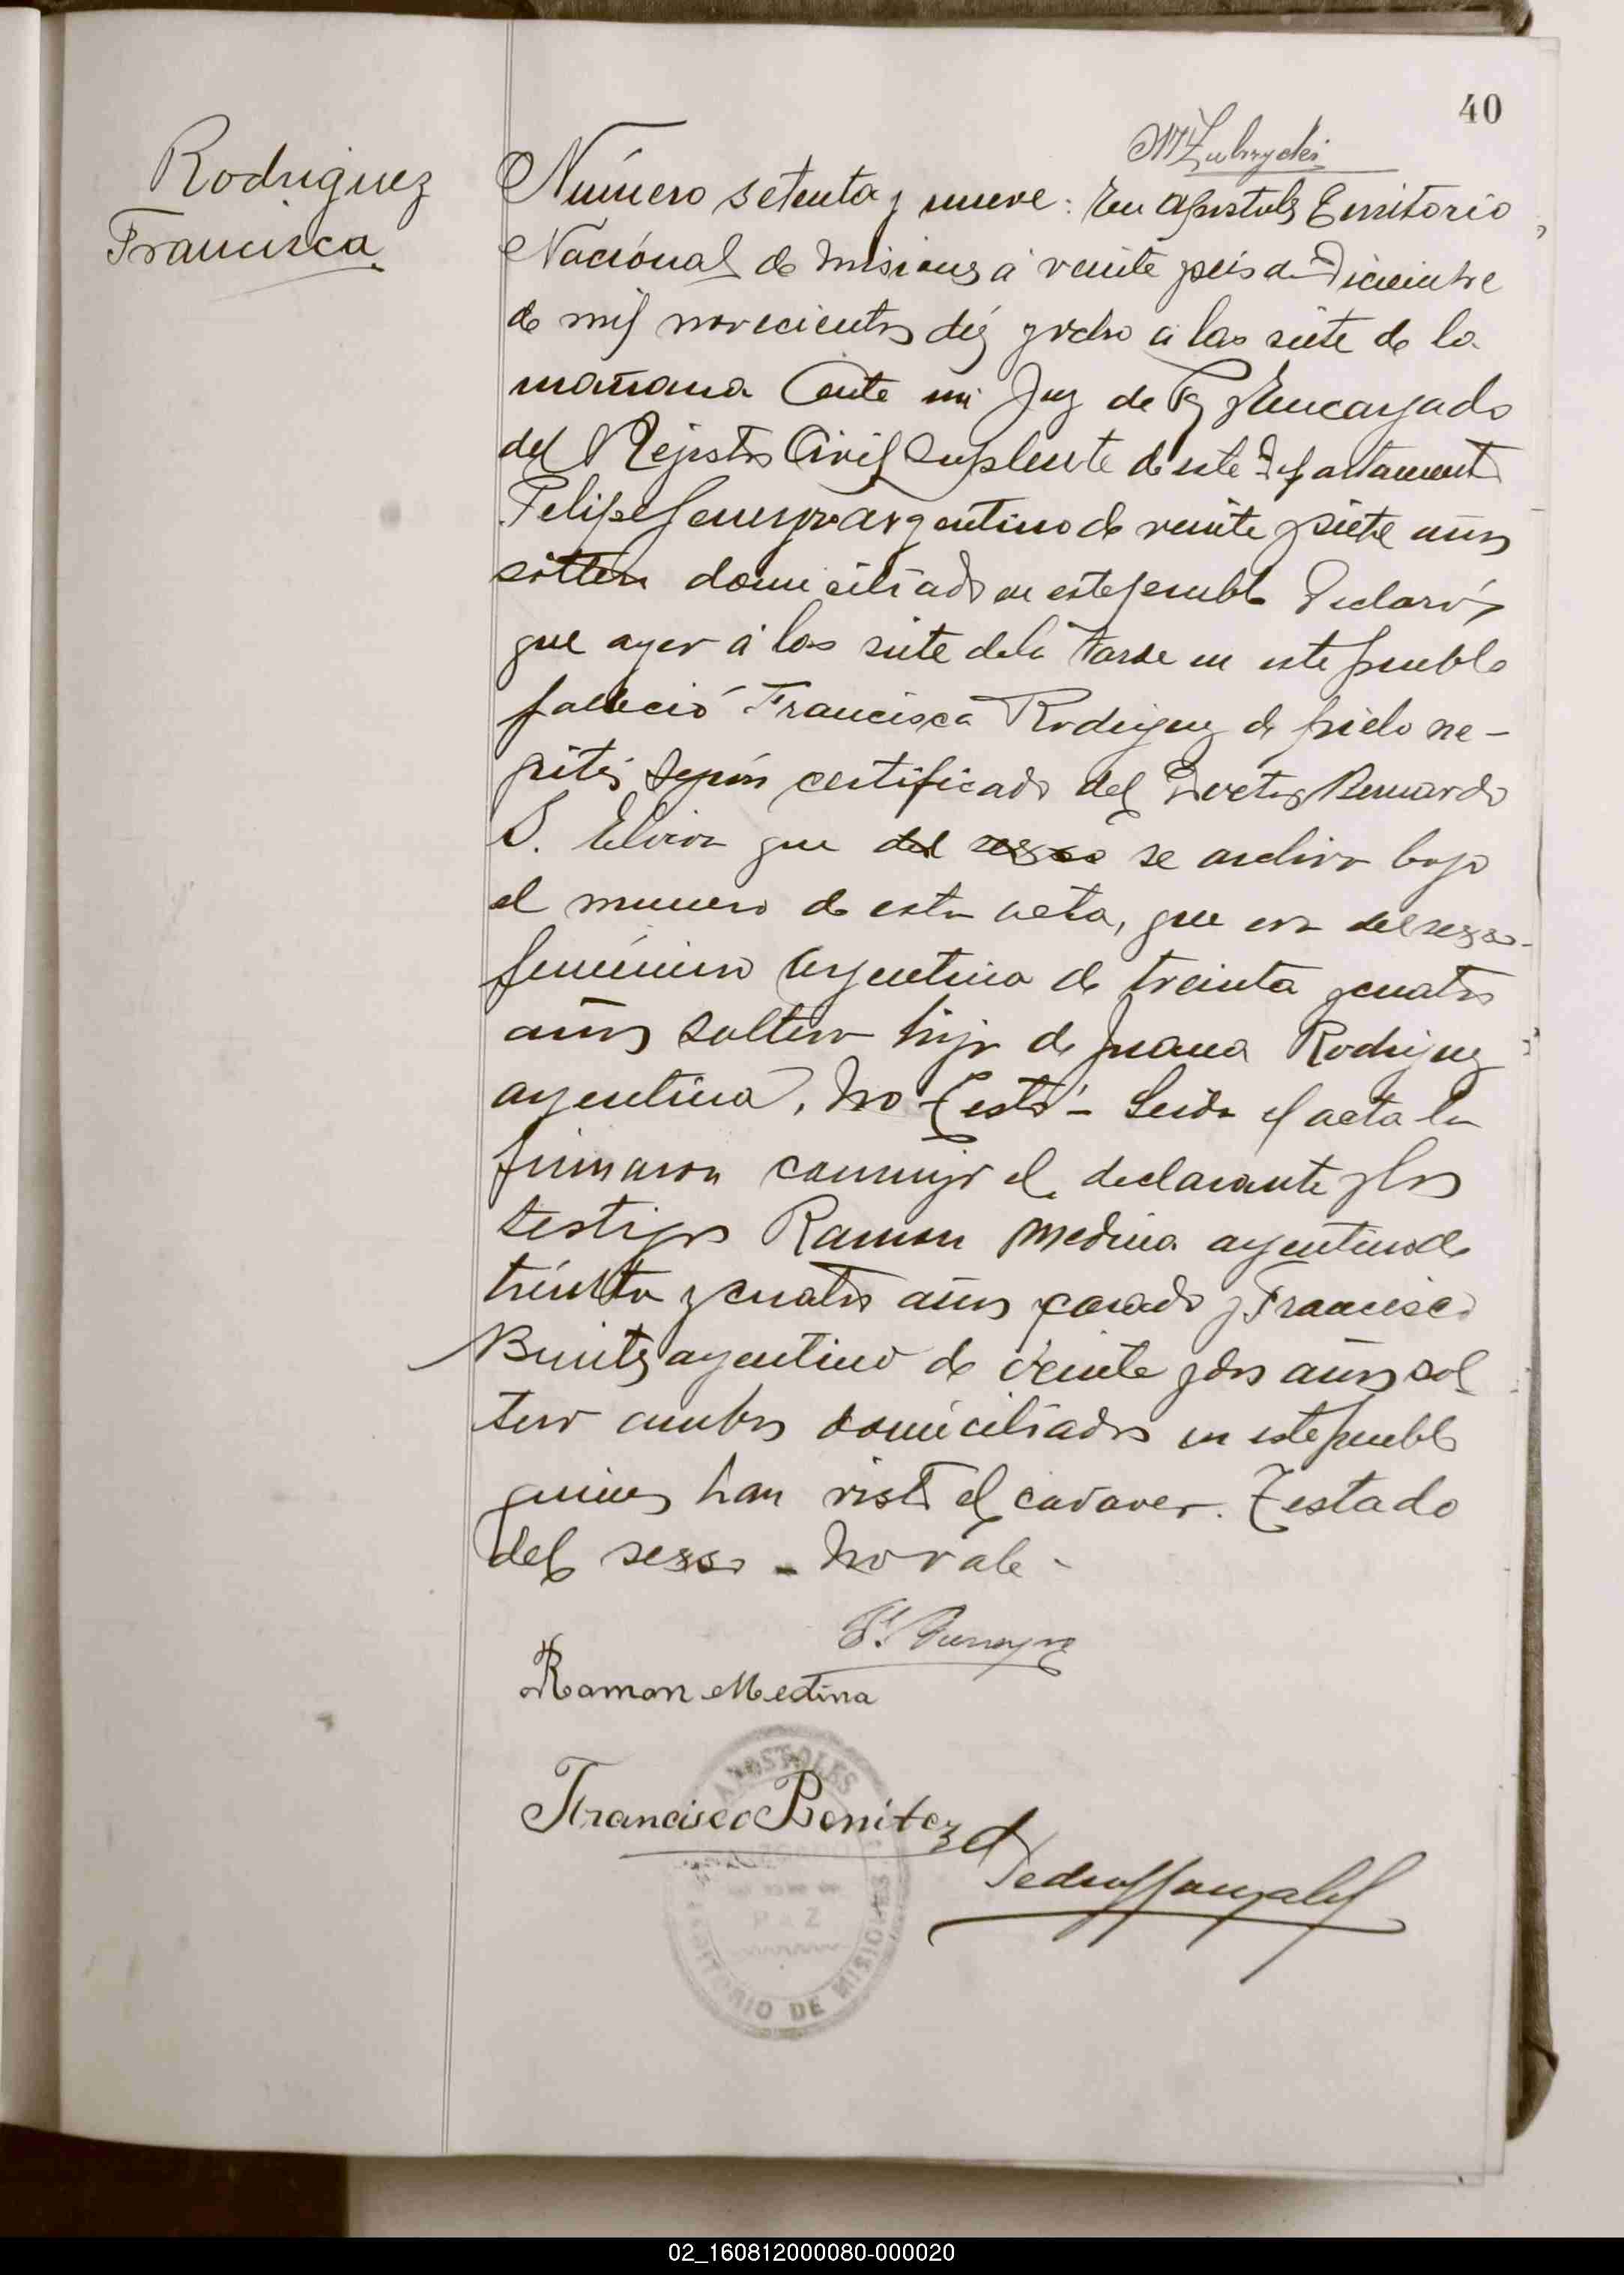 40
MZubrzycki
Rodriguez
Francisca
Número setenta y nueve: En Apostoles Territorio
Nacional de Misiones á veinte y seis de Diciembre
de mil novecientos diez y ocho a las siete de la
mañana Ante mi Juez de Paz y Encargado
del Rejistro Civil Suplente de este Departamento
Felipe argentino de veinte y siete años
soltero domiciliado en este pueblo Declaró,
que ayer á las siete de la tarde en este pueblo
falleció Francisca Rodriguez de pielo ne-
fritis según certificado del Doctor Bernardo
S. Elvira que del sesso se archiva bajo
el numero de esta acta, que era del sesso
femenino argentina de treinta y cuatro
años soltera hija de Juana Rodriguez
argentina, No testó - Leida el acta la
firmaron conmigo el declarante y los
testigos Ramon Medina argentino de
treinta y cuatro años casado y Francisco
Benitez argentino de veinte y dos años sol
tero ambos domiciliados en este pueblo
quienes han visto el cadaver. Testado
del sesso - No vale -
Ramon Medina
Francisco Benitez
Pedro Gonzalez
APOSTOLES
PAZ
TERRITORIO DE MISIONES
02_160812000080-000020